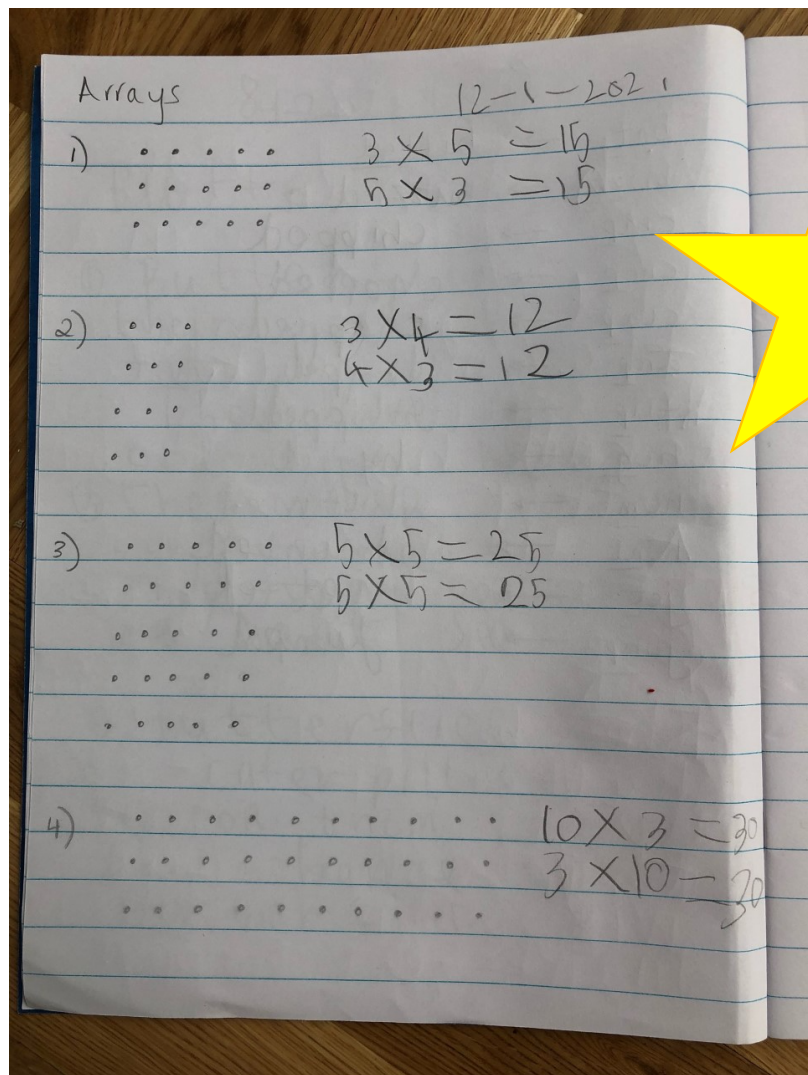 Arrays 12-1-2021
1) 3 × 5 = 15
5 × 3 = 15
2) 3 × 4 = 12
4 × 3 = 12
3) 5 × 5 = 25
5 × 5 = 25
4) 10 × 3 = 30
3 × 10 = 30